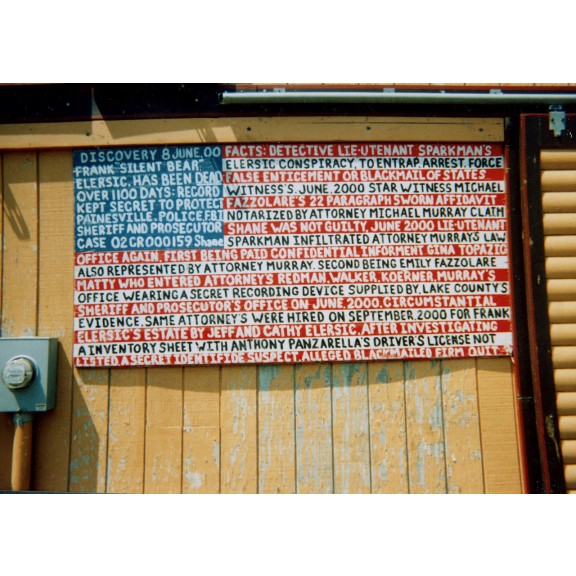 DISCOVERY 8 JUNE, 00
FRANK "SILENT BEAR"
ELERSIC, HAS BEEN DEAD
OVER 1100 DAYS: RECORD
KEPT SECRET TO PROTECT
PAINESVILLE, POLICE, F.B.I
SHERIFF AND PROSECUTOR
CASE 02 CR 000159 Shane
FACTS: DETECTIVE LIE-UTENANT SPARKMAN'S
ELERSIC CONSPIRACY, TO ENTRAP, ARREST, FORCE
FALSE ENTICEMENT OR BLACKMAIL OF STATES
WITNESS'S. JUNE, 2000 STAR WITNESS MICHAEL
FAZZOLARE'S 22 PARAGRAPH SWORN AFFIDAVIT
NOTARIZED BY ATTORNEY MICHAEL MURRAY CLAIM
SHANE WAS NOT GUILTY, JUNE, 2000 LIE-UTENANT
SPARKMAN INFILTRATED ATTORNEY MURRAY'S LAW
OFFICE AGAIN, FIRST BEING PAID CONFIDENTIAL INFORMENT GINA TOPAZIO
ALSO REPRESENTED BY ATTORNEY MURRAY, SECOND BEING EMILY FAZZOLARE
MATTY WHO ENTERED ATTORNEY'S REDMAN, WALKER, KOERNER, MURRAY'S
OFFICE WEARING A SECRET RECORDING DEVICE SUPPLIED BY, LAKE COUNTY'S
SHERIFF AND PROSECUTOR'S OFFICE ON JUNE, 2000. CIRCUMSTANTIAL
EVIDENCE. SAME ATTORNEY'S WERE HIRED ON SEPTEMBER, 2000 FOR FRANK
ELERSIC'S ESTATE BY JEFF AND CATHY ELERSIC. AFTER INVESTIGATING
A INVENTORY SHEET WITH ANTHONY PANZARELLA'S DRIVER'S LICENSE NOT
LISTED, A SECRET IDENTIFIDE SUSPECT, ALLEGED BLACKMAILED FIRM QUIT